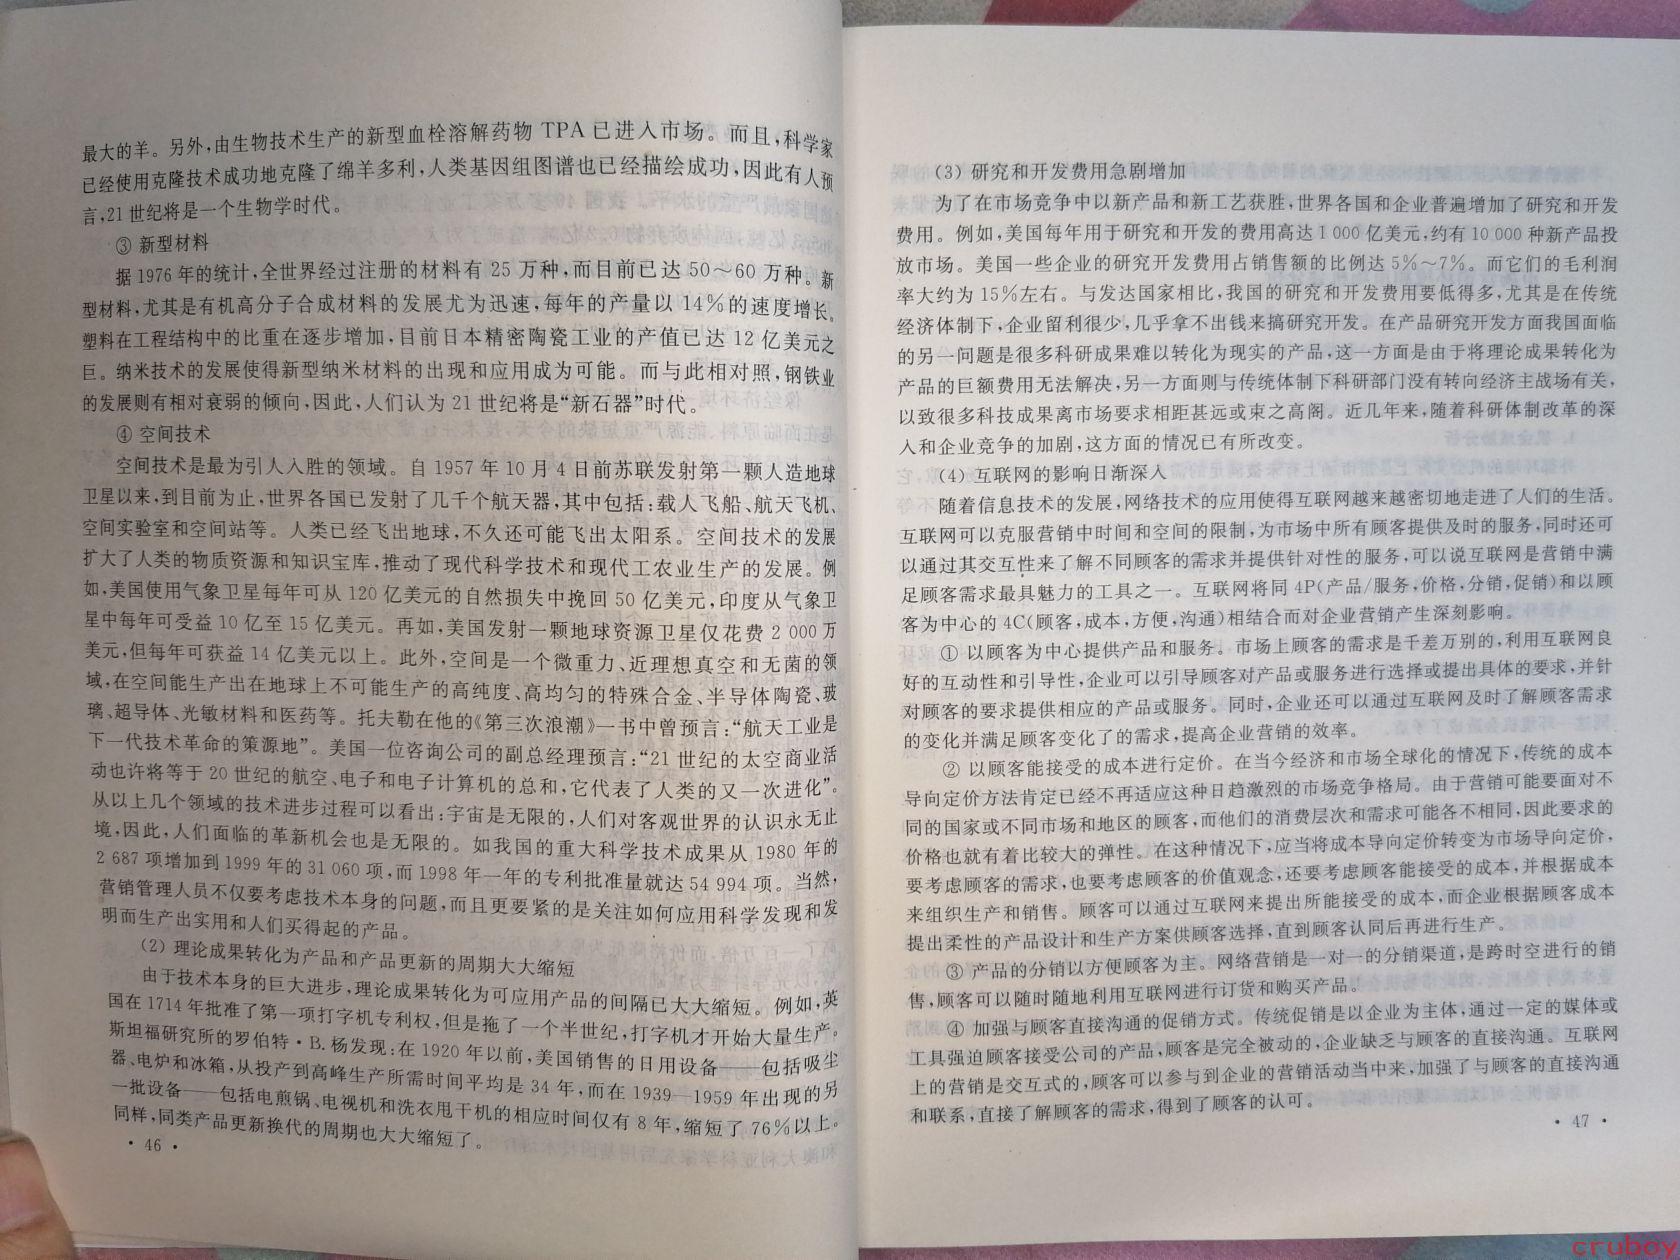 最大的羊。另外,由生物技术生产的新型血栓溶解药物 TPA 已进入市场。而且,科学家
已经使用克隆技术成功地克隆了绵羊多利,人类基因组图谱也已经描绘成功,因此有人预
言,21 世纪将是一个生物学时代。
③ 新型材料
据 1976 年的统计,全世界经过注册的材料有 25 万种,而目前已达 50～60 万种。新
型材料,尤其是有机高分子合成材料的发展尤为迅速,每年的产量以 14%的速度增长。
塑料在工程结构中的比重在逐步增加,目前日本精密陶瓷工业的产值已达 12 亿美元之
巨。纳米技术的发展使得新型纳米材料的出现和应用成为可能。而与此相对照,钢铁业
的发展则有相对衰弱的倾向,因此,人们认为 21 世纪将是“新石器”时代。
④ 空间技术
空间技术是最为引人入胜的领域。自 1957 年 10 月 4 日前苏联发射第一颗人造地球
卫星以来,到目前为止,世界各国已发射了几千个航天器,其中包括:载人飞船、航天飞机、
空间实验室和空间站等。人类已经飞出地球,不久还可能飞出太阳系。空间技术的发展
扩大了人类的物质资源和知识宝库,推动了现代科学技术和现代工农业生产的发展。例
如,美国使用气象卫星每年可从 120 亿美元的自然损失中挽回 50 亿美元,印度从气象卫
星中每年可受益 10 亿至 15 亿美元。再如,美国发射一颗地球资源卫星仅花费 2 000 万
美元,但每年可获益 14 亿美元以上。此外,空间是一个微重力、近理想真空和无菌的领
域,在空间能生产出在地球上不可能生产的高纯度、高均匀的特殊合金、半导体陶瓷、玻
璃、超导体、光敏材料和医药等。托夫勒在他的《第三次浪潮》一书中曾预言:“航天工业是
下一代技术革命的策源地”。美国一位咨询公司的副总经理预言:“21 世纪的太空商业活
动也许将等于 20 世纪的航空、电子和电子计算机的总和,它代表了人类的又一次进化”。
从以上几个领域的技术进步过程可以看出:宇宙是无限的,人们对客观世界的认识永无止
境,因此,人们面临的革新机会也是无限的。如我国的重大科学技术成果从 1980 年的
2 687 项增加到 1999 年的 31 060 项,而 1998 年一年的专利批准量就达 54 994 项。当然,
营销管理人员不仅要考虑技术本身的问题,而且更要紧的是关注如何应用科学发现和发
明而生产出实用和人们买得起的产品。
(2) 理论成果转化为产品和产品更新的周期大大缩短
由于技术本身的巨大进步,理论成果转化为可应用产品的间隔已大大缩短。例如,英
国在 1714 年批准了第一项打字机专利权,但是拖了一个半世纪,打字机才开始大量生产。
斯坦福研究所的罗伯特·B.杨发现:在 1920 年以前,美国销售的日用设备——包括吸尘
器、电炉和冰箱,从投产到高峰生产所需时间平均是 34 年,而在 1939—1959 年出现的另
一批设备——包括电煎锅、电视机和洗衣甩干机的相应时间仅有 8 年,缩短了 76%以上。
同样,同类产品更新换代的周期也大大缩短了。
· 46 ·
(3) 研究和开发费用急剧增加
为了在市场竞争中以新产品和新工艺获胜,世界各国和企业普遍增加了研究和开发
费用。例如,美国每年用于研究和开发的费用高达 1 000 亿美元,约有 10 000 种新产品投
放市场。美国一些企业的研究开发费用占销售额的比例达 5%～7%。而它们的毛利润
率大约为 15%左右。与发达国家相比,我国的研究和开发费用要低得多,尤其是在传统
经济体制下,企业留利很少,几乎拿不出钱来搞研究开发。在产品研究开发方面我国面临
的另一问题是很多科研成果难以转化为现实的产品,这一方面是由于将理论成果转化为
产品的巨额费用无法解决,另一方面则与传统体制下科研部门没有转向经济主战场有关,
以致很多科技成果离市场要求相距甚远或束之高阁。近几年来,随着科研体制改革的深
入和企业竞争的加剧,这方面的情况已有所改变。
(4) 互联网的影响日渐深入
随着信息技术的发展,网络技术的应用使得互联网越来越密切地走进了人们的生活。
互联网可以克服营销中时间和空间的限制,为市场中所有顾客提供及时的服务,同时还可
以通过其交互性来了解不同顾客的需求并提供针对性的服务,可以说互联网是营销中满
足顾客需求最具魅力的工具之一。互联网将同 4P(产品/服务,价格,分销,促销)和以顾
客为中心的 4C(顾客,成本,方便,沟通)相结合而对企业营销产生深刻影响。
① 以顾客为中心提供产品和服务。市场上顾客的需求是千差万别的,利用互联网良
好的互动性和引导性,企业可以引导顾客对产品或服务进行选择或提出具体的要求,并针
对顾客的要求提供相应的产品或服务。同时,企业还可以通过互联网及时了解顾客需求
的变化并满足顾客变化了的需求,提高企业营销的效率。
② 以顾客能接受的成本进行定价。在当今经济和市场全球化的情况下,传统的成本
导向定价方法肯定已经不再适应这种日趋激烈的市场竞争格局。由于营销可能要面对不
同的国家或不同市场和地区的顾客,而他们的消费层次和需求可能各不相同,因此要求的
价格也就有着比较大的弹性。在这种情况下,应当将成本导向定价转变为市场导向定价,
要考虑顾客的需求,也要考虑顾客的价值观念,还要考虑顾客能接受的成本,并根据成本
来组织生产和销售。顾客可以通过互联网来提出所能接受的成本,而企业根据顾客成本
提出柔性的产品设计和生产方案供顾客选择,直到顾客认同后再进行生产。
③ 产品的分销以方便顾客为主。网络营销是一对一的分销渠道,是跨时空进行的销
售,顾客可以随时随地利用互联网进行订货和购买产品。
④ 加强与顾客直接沟通的促销方式。传统促销是以企业为主体,通过一定的媒体或
工具强迫顾客接受公司的产品,顾客是完全被动的,企业缺乏与顾客的直接沟通。互联网
上的营销是交互式的,顾客可以参与到企业的营销活动当中来,加强了与顾客的直接沟通
和联系,直接了解顾客的需求,得到了顾客的认可。
· 47 ·
cruboy